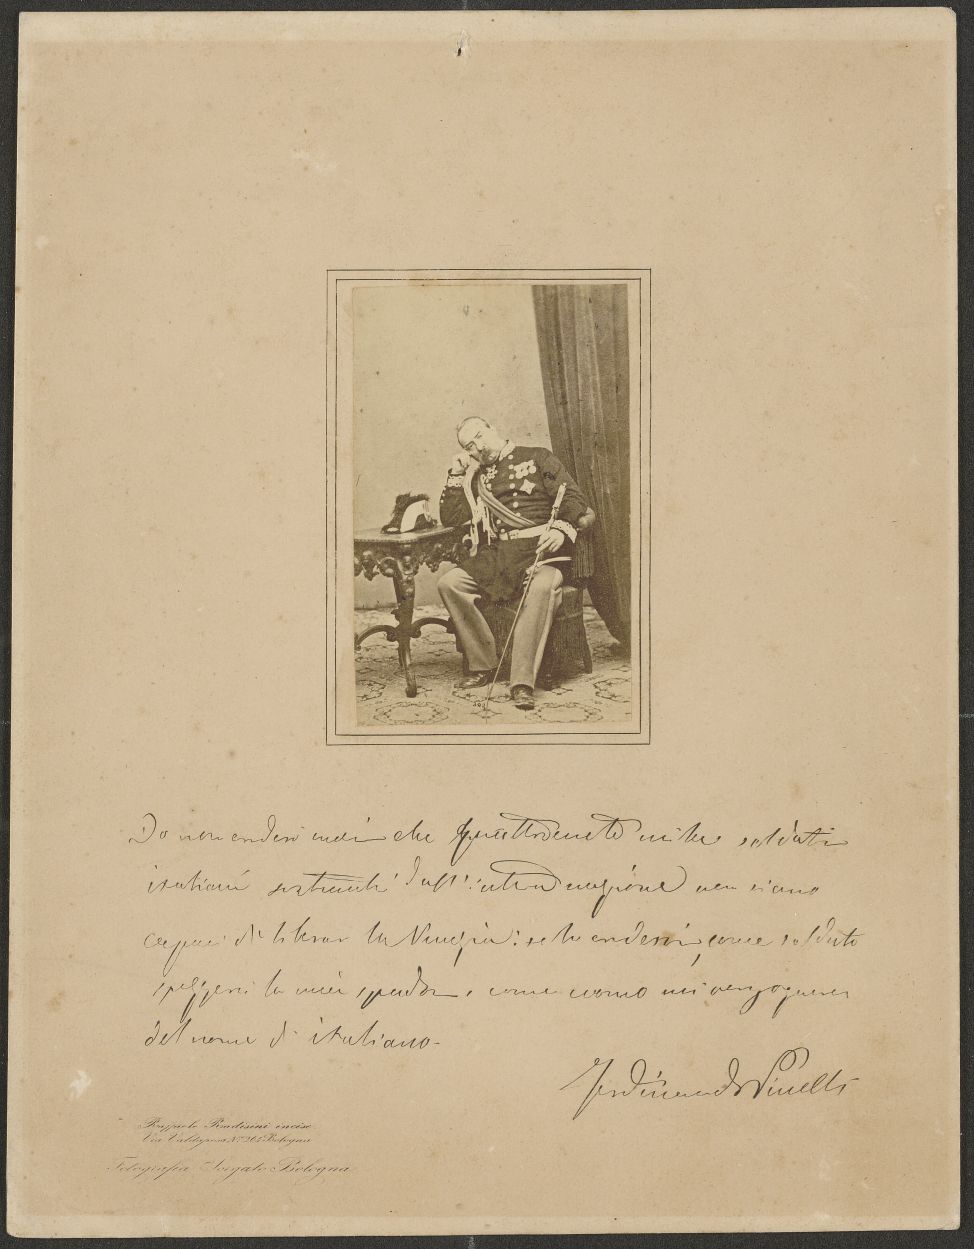 Io non crederò mai che quattrocento mila soldati
italiani sostenuti dall'intera nazione non siano
capaci di liberar la Venezia: se lo credessi, come soldato
spezzerei la mia spada, come uomo mi vergognerei
del nome di italiano.
Ferdinando Pinelli
Raffaele Pradisini incise
Via Valdaposa N° 365 Bologna
Fotografia Sorgato Bologna